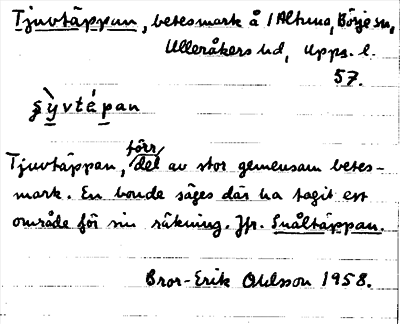 Tjuvtäppan, betesmark å 1 Altuna, Börje sn,
Ulleråkers hd, Upps. l.
57.
ʂỳvtépan
förr
Tjuvtäppan, del av stor gemensam betes-
mark. En bonde säges där ha tagit ett
område för sin räkning. Jfr. Snåltäppan.
Bror-Erik Ohlsson 1958.